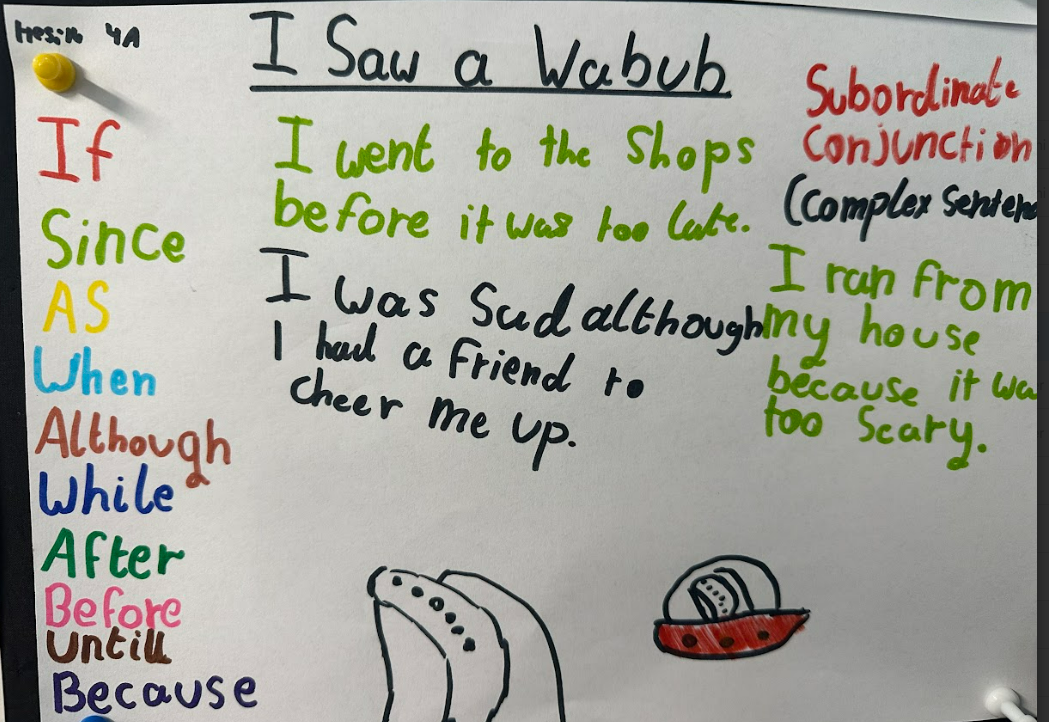 4A
I Saw a Wabub
If
Since
AS
When
Although
While
After
Before
Untill
Because
I went to the Shops
before it was too late.
I was Sad although
I had a friend to
cheer me up.
Subordinate
Conjunction
(complex Senten
I ran from
my house
because it wa
too Scary.